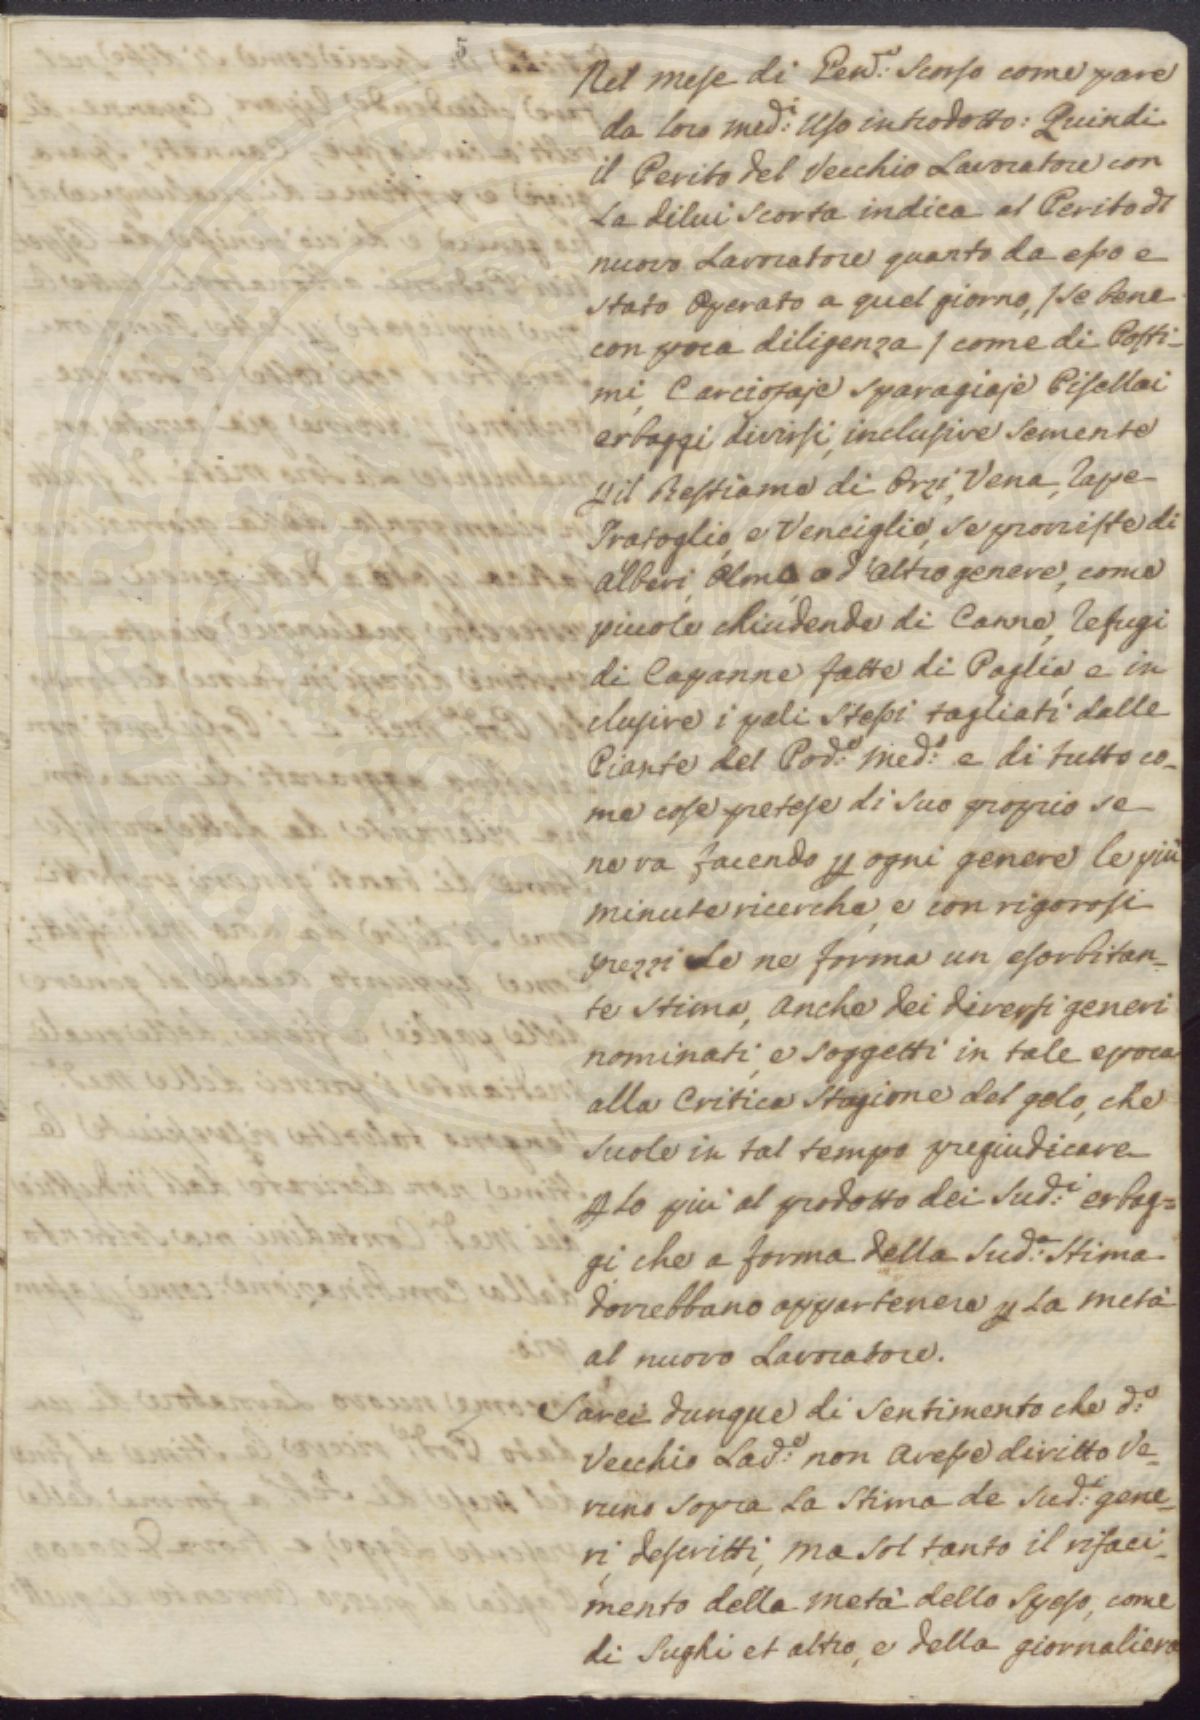 5
Nel mese di Gen.º Scorso come pare
da loro med.i Uso introdotto: Quindi
il Perito del Vecchio Lavoratore con
La dilui Scorta indica al Perito dl
nuovo Lavoratore quanto da esso e
stato Operato a quel giorno, / se bene
con poca diligenza / come di Posti-
mi, Carciofaje Sparagiaje Pisellai
erbaggi divirsi, inclusive Semente
p il Bestiame di Orzi, Vena, Rape
Trafoglio, e Venciglie, se provviste di
alberi, Olmi, o d'altro genere, come
piccole chiudende di Canne, Refugi
di Capanne fatte di Paglia, e in
clusive i pali Stessi tagliati dalle
Piante del Pod.e Med.º e di tutto co-
me cose pretese di Suo proprio se
ne va facendo p ogni genere le più
minute ricerche, e con rigorosi
prezzi Le ne forma un esorbitan-
te Stima, anche dei diversi generi
nominati, e Soggetti in tale epoca
alla Critica Stagione del gelo, che
Suole in tal tempo pregiudicare
p lo più al prodotto dei Sud.i erbag=
gi che a forma della Sud.a Stima
dovrebbano appartenere p La metà
al nuovo Lavoratore.
Sarei dunque di Sentimento che d.º
Vecchio Lad.e non avesse diritto Ve-
runo Sopra La Stima de Sud.i gene-
ri, descritti, ma Sol tanto il rifaci-
mento della metà dello Speso, come
di Sughi et altro, e della giornaliera